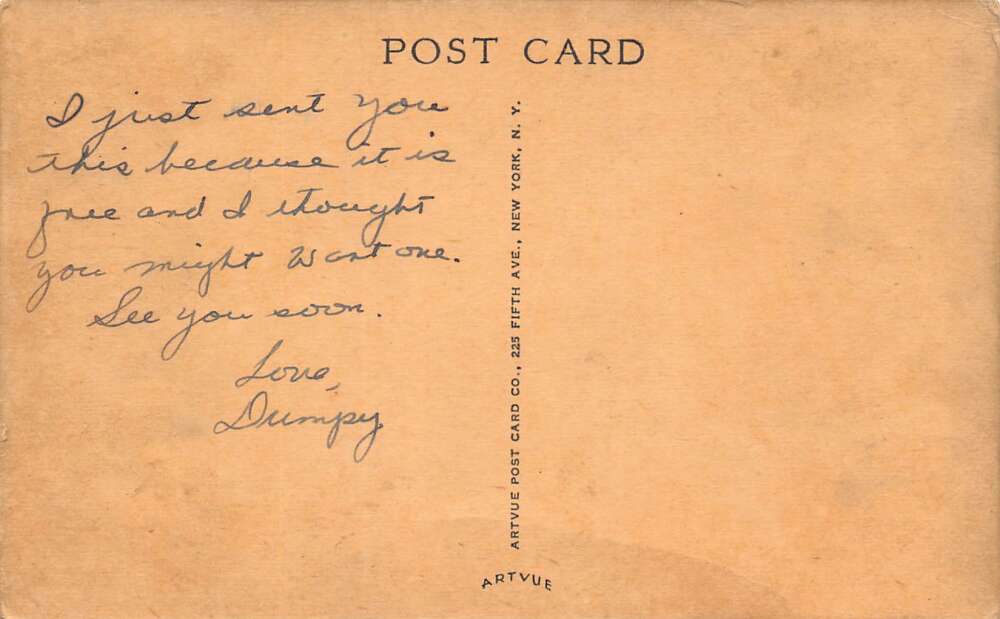 POST CARD
I just sent you
this because it is
free and I thought
you might want one.
See you soon.
Love,
Dumpy
ARTVUE POST CARD CO., 225 FIFTH AVE., NEW YORK, N. Y.
ARTVUE